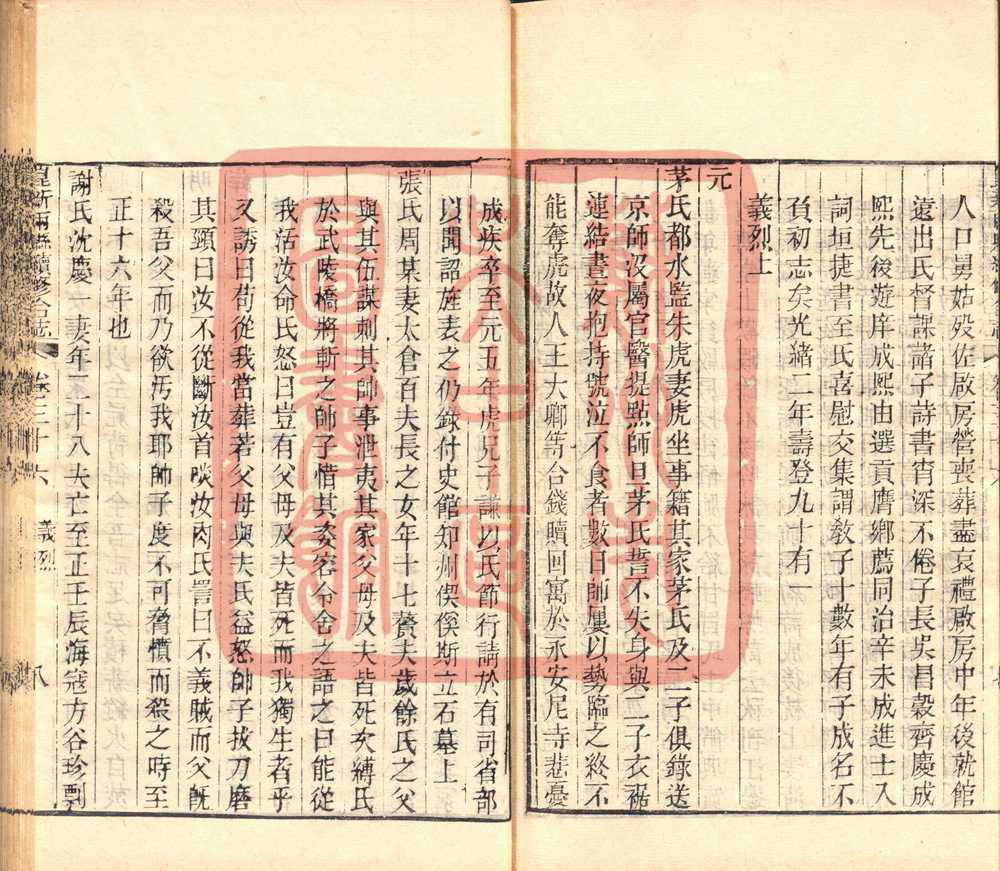 人口舅姑歿佐啟房營喪葬盡哀禮啟房中年後就館
遠出氏督課諸子詩書宵深不倦子長吳昌穀齊慶成
熙先後遊庠成熙由選貢膺鄉薦同治辛未成進士入
詞垣捷書至氏喜慰交集謂教子十數年有子成名不
負初志矣光緒二年壽登九十有一
義烈上
元
茅氏都水監朱虎妻虎坐事籍其家茅氏及二子俱錄送
京師沒屬官醫提點師旦茅氏誓不失身與二子衣裾
連結晝夜抱持號泣不食者數日師屢以勢臨之終不
能奪虎故人王大卿等台錢贖回寓於永安尼寺悲憂
成疾卒至元五年虎兄子謙以氏節行請於有司省部
以聞詔旌表之仍錄付史館知州偰傒斯立石墓上
張氏周某妻太倉百夫長之女年十七贅夫歲餘氏之父
與其伍謀刺其帥事泄夷其家父母及夫皆死欠縛氏
於武陵橋將斬之帥子惜其姿容令舍之語之曰能從
我活汝命氏怒曰豈有父母及夫皆死而我獨生者乎
又誘曰苟從我當葬若父母與夫氏益怒帥子拔刀磨
其頸曰汝不從斷汝首啖汝肉氏詈曰不義賊而父旣
殺吾父而乃欲汚我耶帥子度不可脅憤而殺之時至
正十六年也
謝氏沈慶一妻年二十八夫亡至正壬辰海寇方谷珍剽
崑新兩縣續修合志 卷三十六 義烈 八